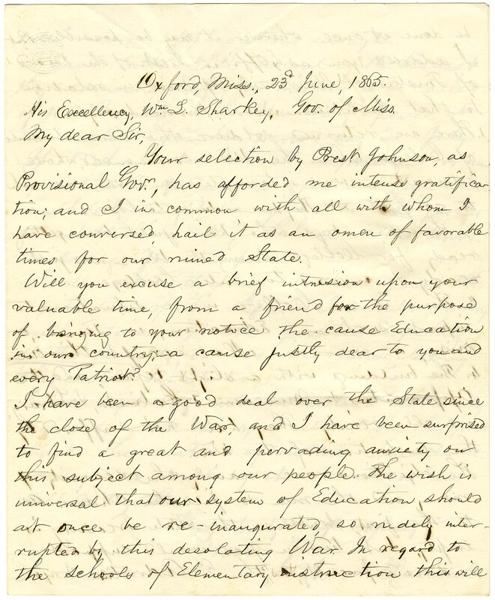 Oxford, Miss., 23d June 1865.
His Excellency, Wm. L. Sharkey, Gov. of Miss.
My dear Sir,
Your selection by Prest Johnson, as
Provisional Govr., has afforded me intense gratifica-
tion; and I in common with all with whom I
have conversed, hail it as an omen of favorable
times for our ruined State.
Will you excuse a brief intrusion upon your
valuable time, from a friend for the purpose
of bringing to your notice the cause Education
in our country; a cause justly dear to you and
every Patriot?
I have been a good deal over the State since
the close of the War, and I have been surprised
to find a great and pervading anxiety on
this subject among our people. The wish is
universal that our system of Education should
at once be re-inaugurated, so rudely inter-
rupted by this desolating War. In regard to
the schools of Elementary instruction this will